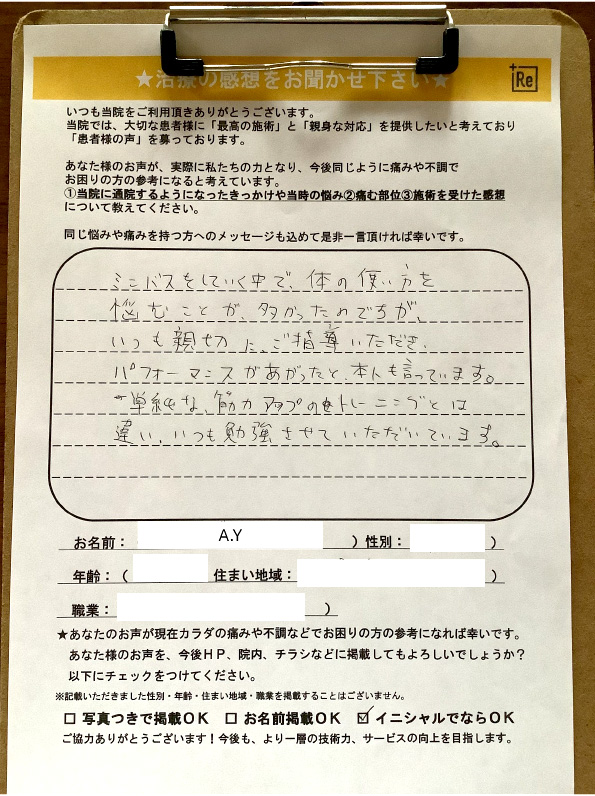 ★治療の感想をお聞かせ下さい★
+Re
いつも当院をご利用頂きありがとうございます。
当院では、大切な患者様に「最高の施術」と「親身な対応」を提供したいと考えており
「患者様の声」を募っております。
あなた様のお声が、実際に私たちの力となり、今後同じように痛みや不調で
お困りの方の参考になると考えています。
①当院に通院するようになったきっかけや当時の悩み②痛む部位③施術を受けた感想
について教えてください。
同じ悩みや痛みを持つ方へのメッセージも込めて是非一言頂ければ幸いです。
ミニバスをしていく中で、体の使い方を
悩むことが、多かったのですが、
いつも親切に、ご指導いただき、
パフォーマンスがあがったと、本人も言っています。
単純な、筋力アップのトレーニングとは
違い、いつも勉強させていただいています。
お名前： A.Y ）性別： ）
年齢：（ 住まい地域： ）
職業： ）
★あなたのお声が現在カラダの痛みや不調などでお困りの方の参考になれば幸いです。
あなた様のお声を、今後ＨＰ、院内、チラシなどに掲載してもよろしいでしょうか？
以下にチェックをつけてください。
※記載いただきました性別・年齢・住まい地域・職業を掲載することはございません。
☐ 写真つきで掲載ＯＫ ☐ お名前掲載ＯＫ ☑ イニシャルでならＯＫ
ご協力ありがとうございます！今後も、より一層の技術力、サービスの向上を目指します。